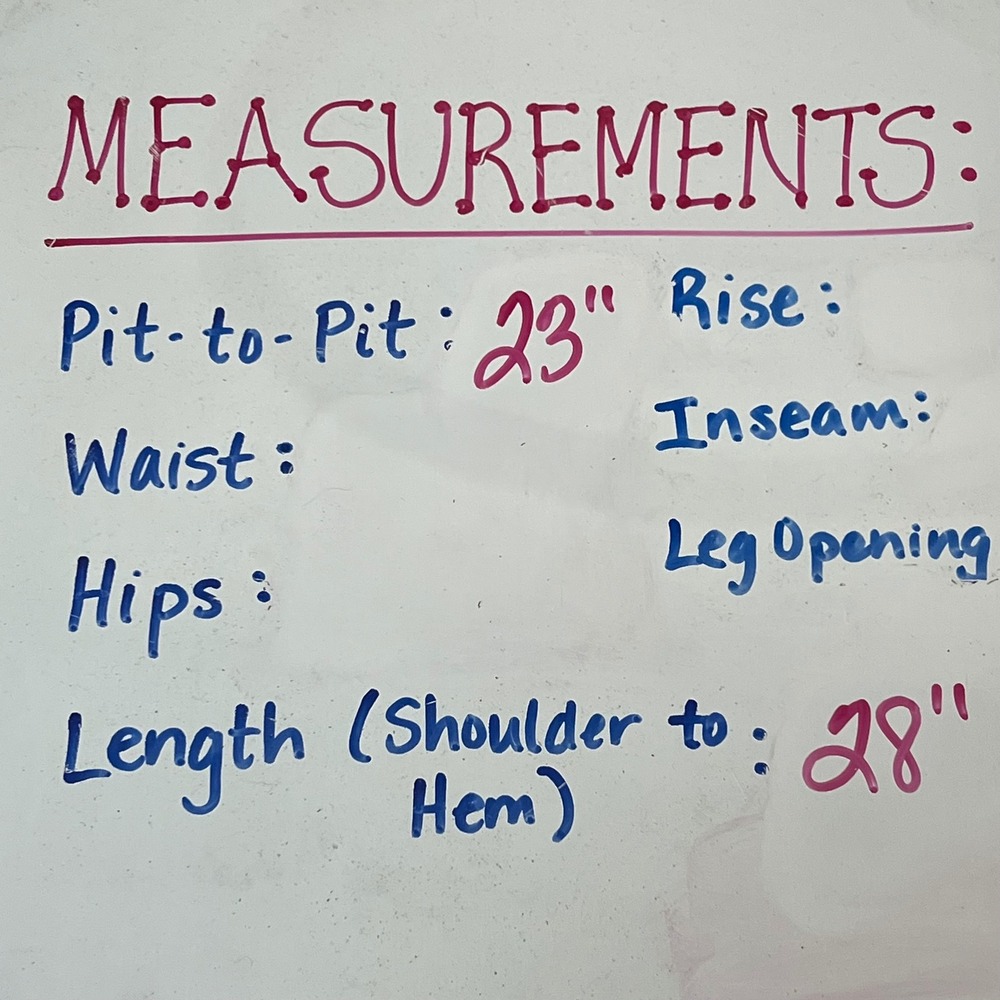 MEASUREMENTS:
Pit-to-Pit: 23"
Waist:
Hips:
Rise:
Inseam:
Leg Opening
Length (Shoulder to : 28"
Hem)